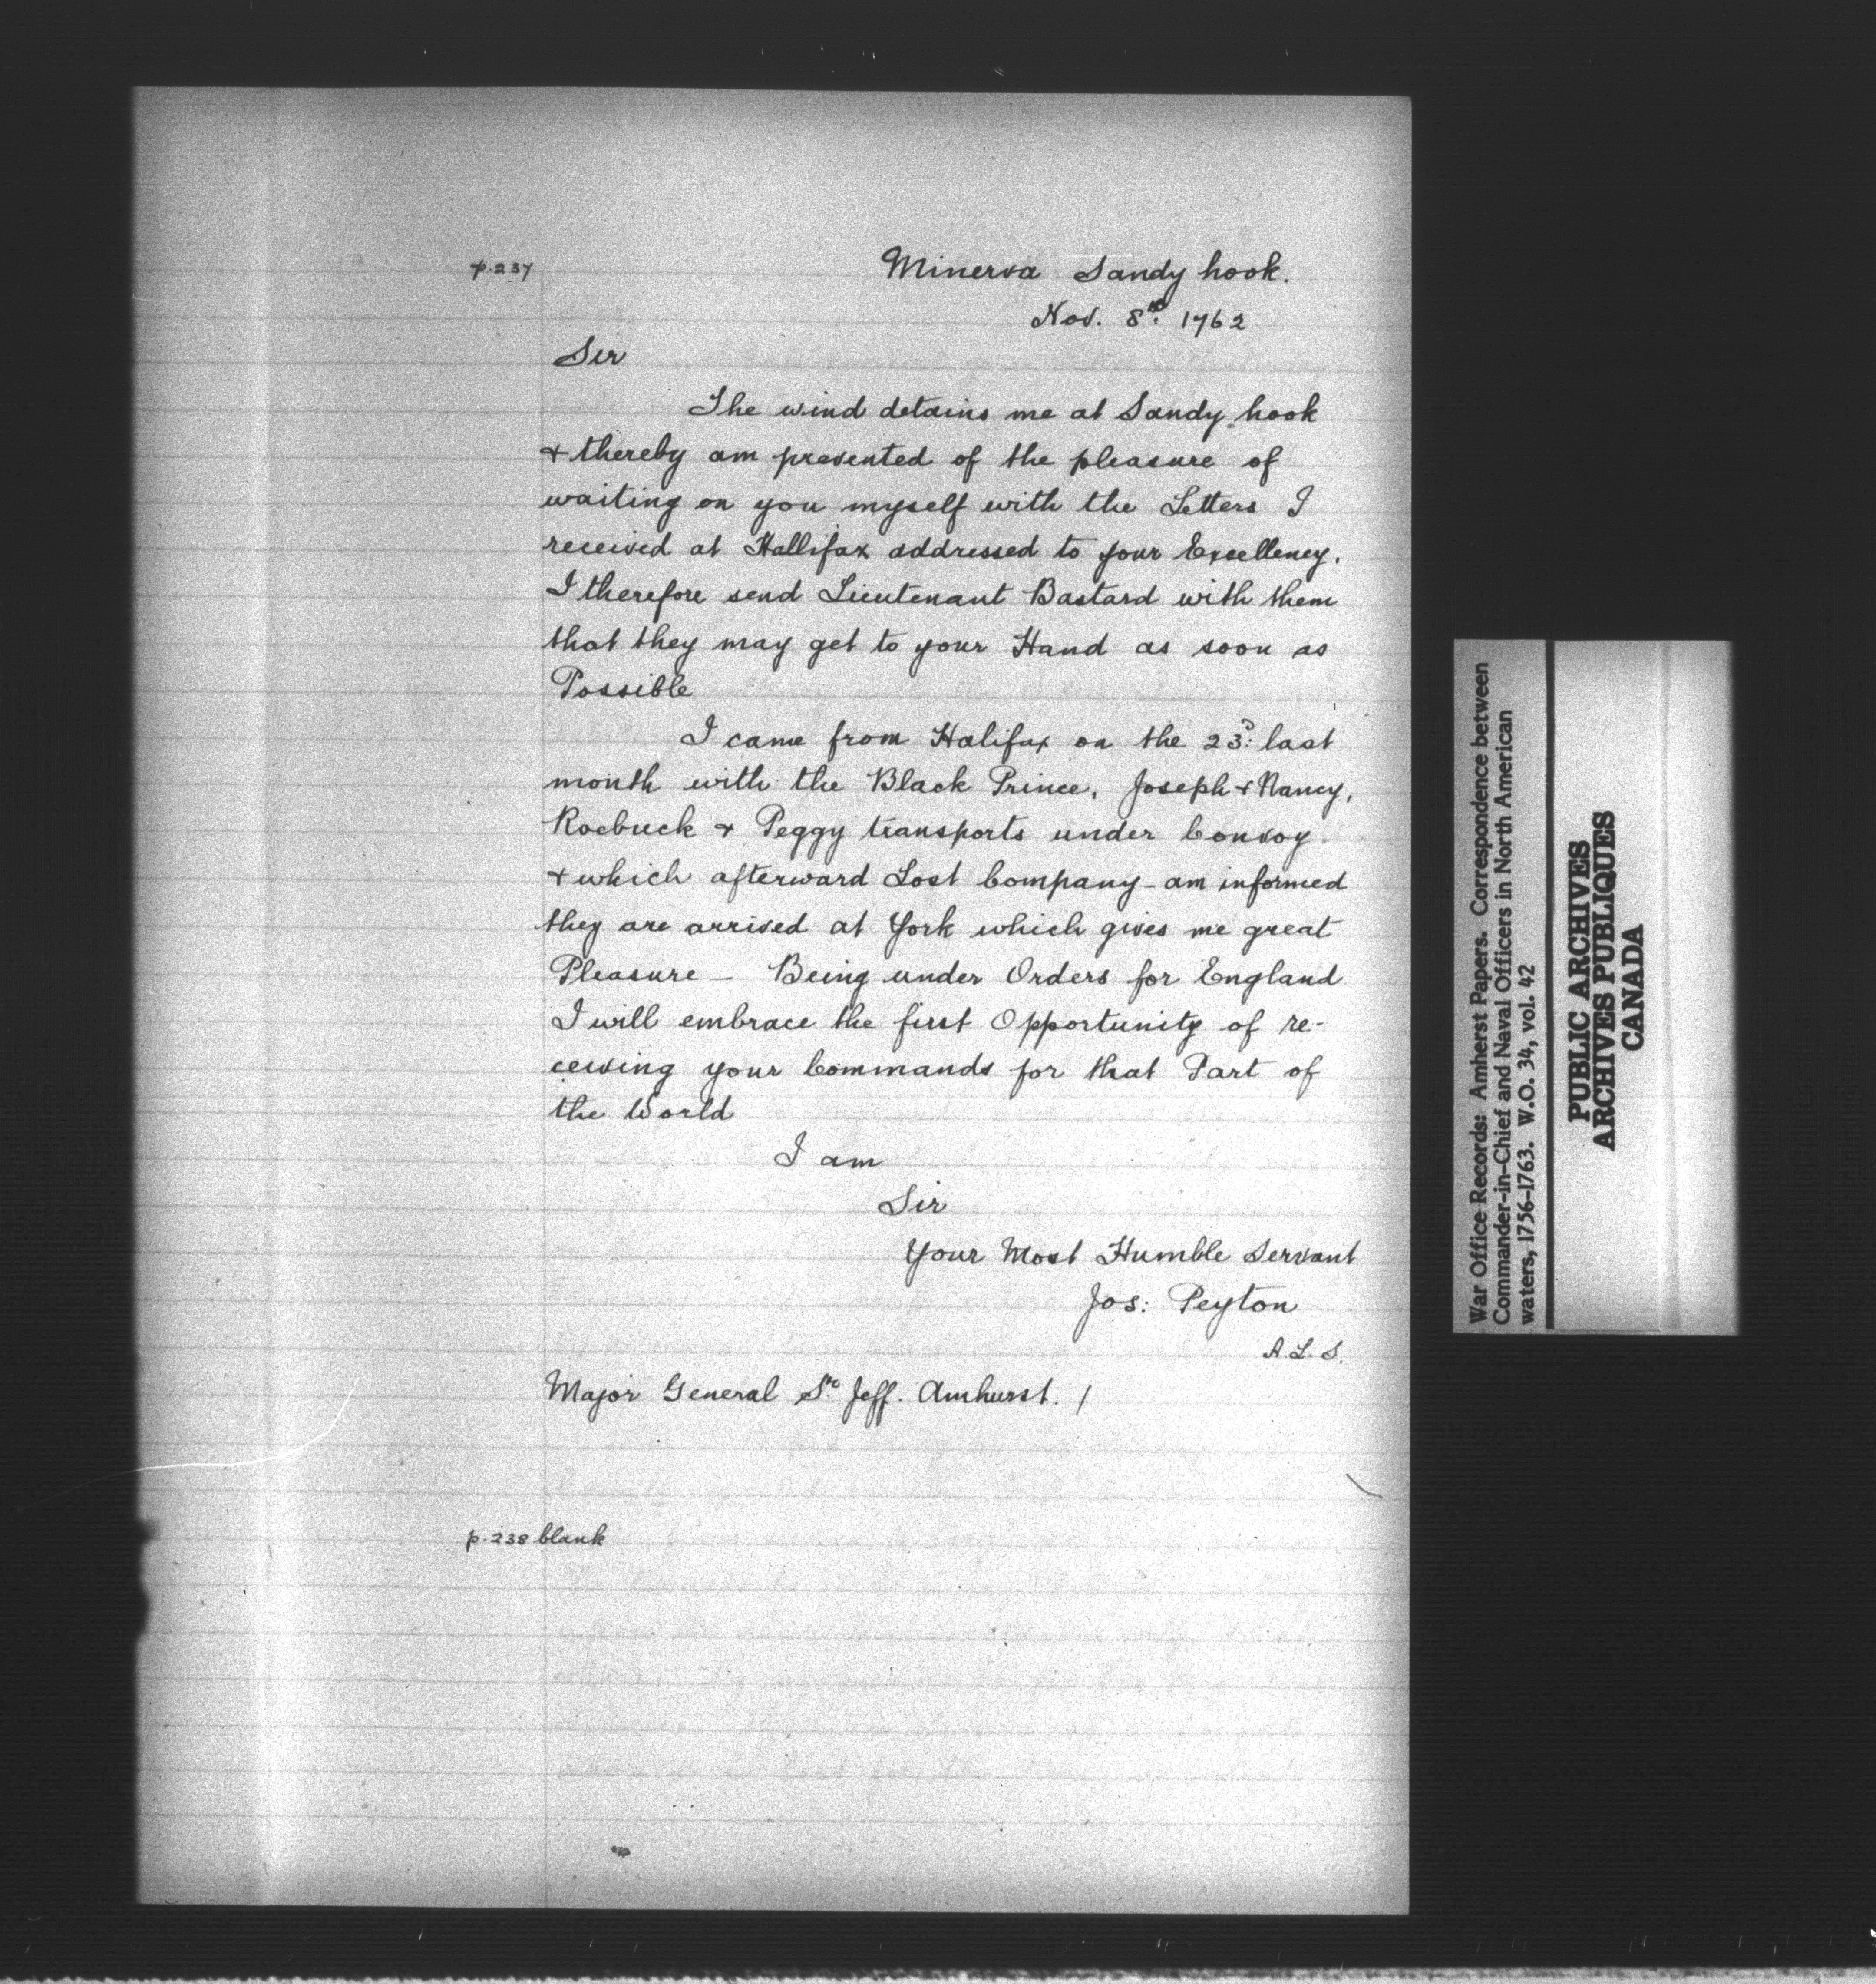 p. 237
Minerva Sandy hook.
Nov. 8th. 1762
Sir
The wind detains me at Sandy hook
& thereby am prevented of the pleasure of
waiting on you myself with the Letters I
received at Hallifax addressed to your Excellency.
I therefore send Lieutenant Bastard with them
that they may get to your Hand as soon as
Possible
I came from Halifax on the 23d: last
month with the Black Prince, Joseph & Nancy,
Roebuck & Peggy transports under Convoy
& which afterward Lost Company - am informed
they are arrived at York which gives me great
Pleasure - Being under Orders for England
I will embrace the first Opportunity of re-
ceiving your Commands for that Part of
the World
I am
Sir
Your Most Humble Servant
Jos: Peyton
A.L.S.
Major General Sr. Jeff. Amhurst. /
p. 238 blank
War Office Records: Amherst Papers. Correspondence between
Commander-in-Chief and Naval Officers in North American
waters, 1756-1763. W.O. 34, vol. 42
PUBLIC ARCHIVES
ARCHIVES PUBLIQUES
CANADA